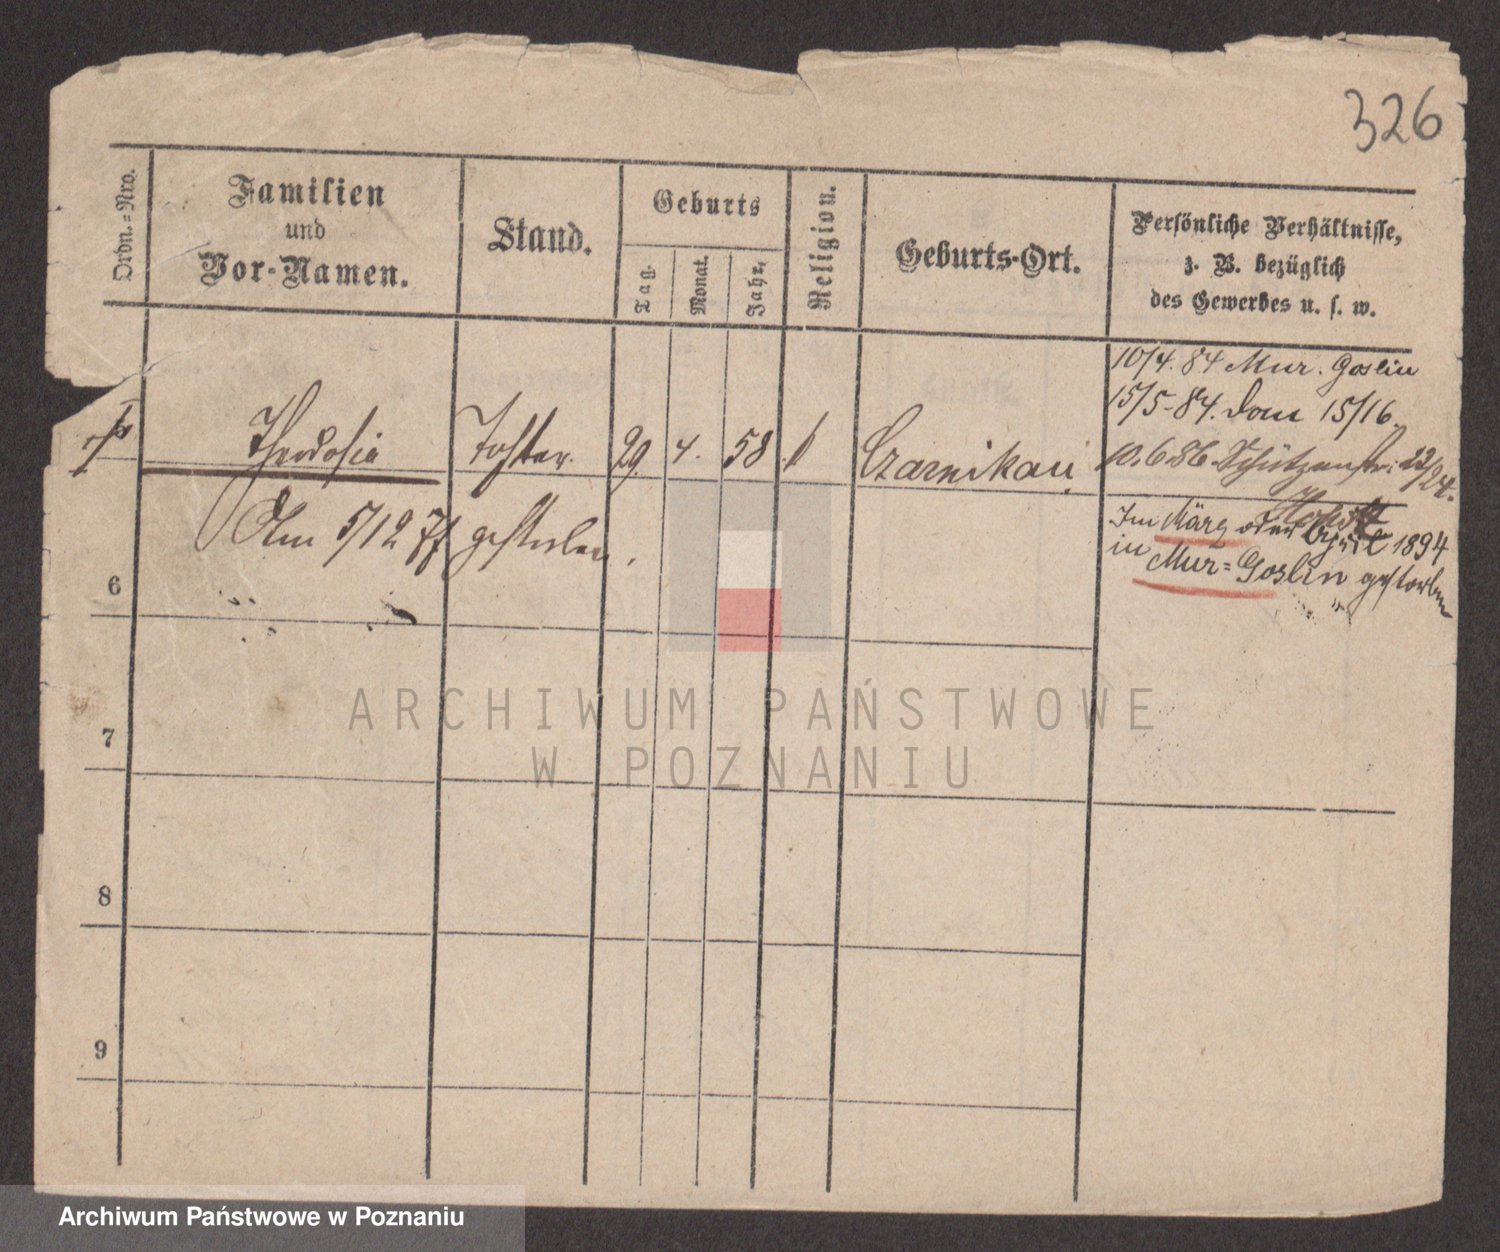 326
Ordn.=Nro.
Familien
und
Vor-Namen.
Stand.
Geburts
Tag.
Monat.
Jahr.
Religion.
Geburts-Ort.
Persönliche Verhältnisse,
z. B. bezüglich
des Gewerbes u. s. w.
10/4. 84 Mur. Goslin
15/5. 84. Dom 15/16.
Theodosia Tochter. 29 4. 58 Czarnikau
10.6.86. Schützenstr: 23/24.
Am 5/12 77 gestorben.
Im März oder April 1894
in Mur=Goslin gestorben
6
7
8
9
ARCHIWUM PAŃSTWOWE
W POZNANIU
Archiwum Państwowe w Poznaniu